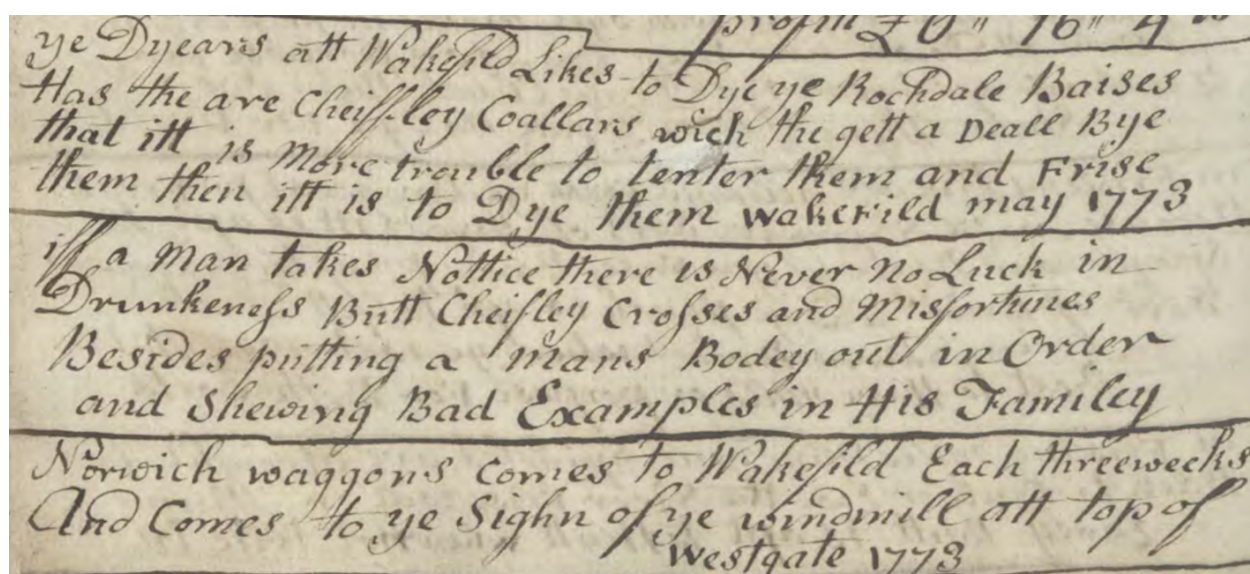 profitt £ 0" 16" 4
ye Dyears att Wakefild Likes to Dye ye Rochdale Baises
Has the are Cheiffley Coallars wich the gett a Deall Bye
that itt is More trouble to tenter them and Frise
them then itt is to Dye them wakefild may 1773
iff a Man takes Nottice there is Never No Luck in
Drunkeness Butt Cheifley Crosses and Misfortunes
Besides putting a mans Bodey out in Order
and Shewing Bad Examples in His Familey
Norwich waggons Comes to Wakefild Each threeweeks
And Comes to ye Sighn of ye windmill att top of
Westgate 1773